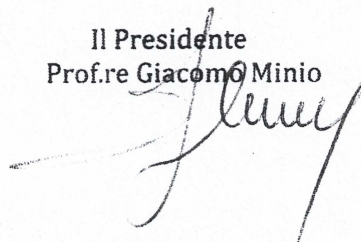 Il Presidente
Prof.re Giacomo Minio